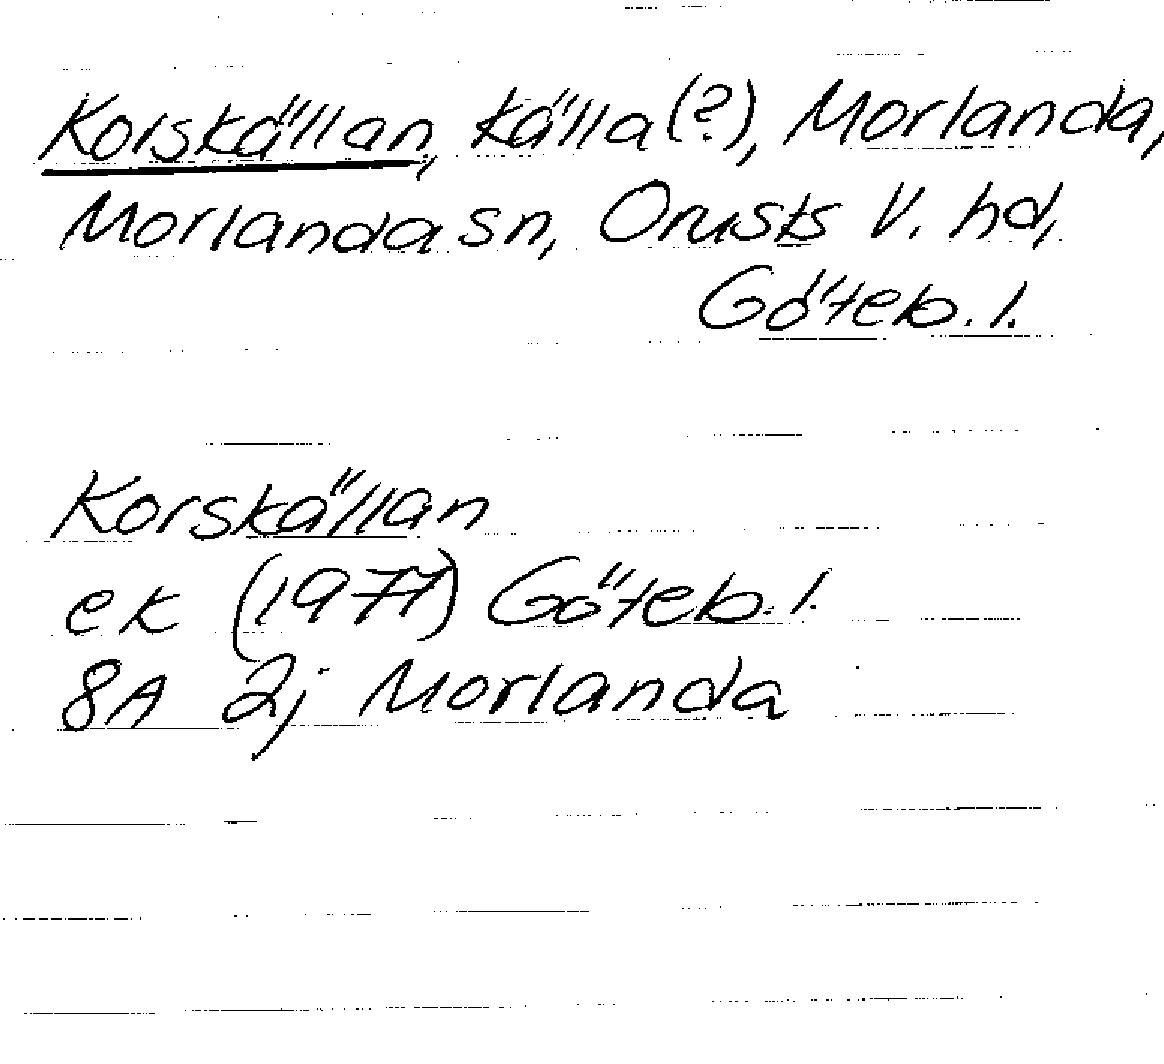 Korskällan, källa (?), Morlanda,
Morlanda sn, Orusts V. hd,
Göteb. l.
Korskällan
ek (1977) Göteb. l.
8A 2j Morlanda